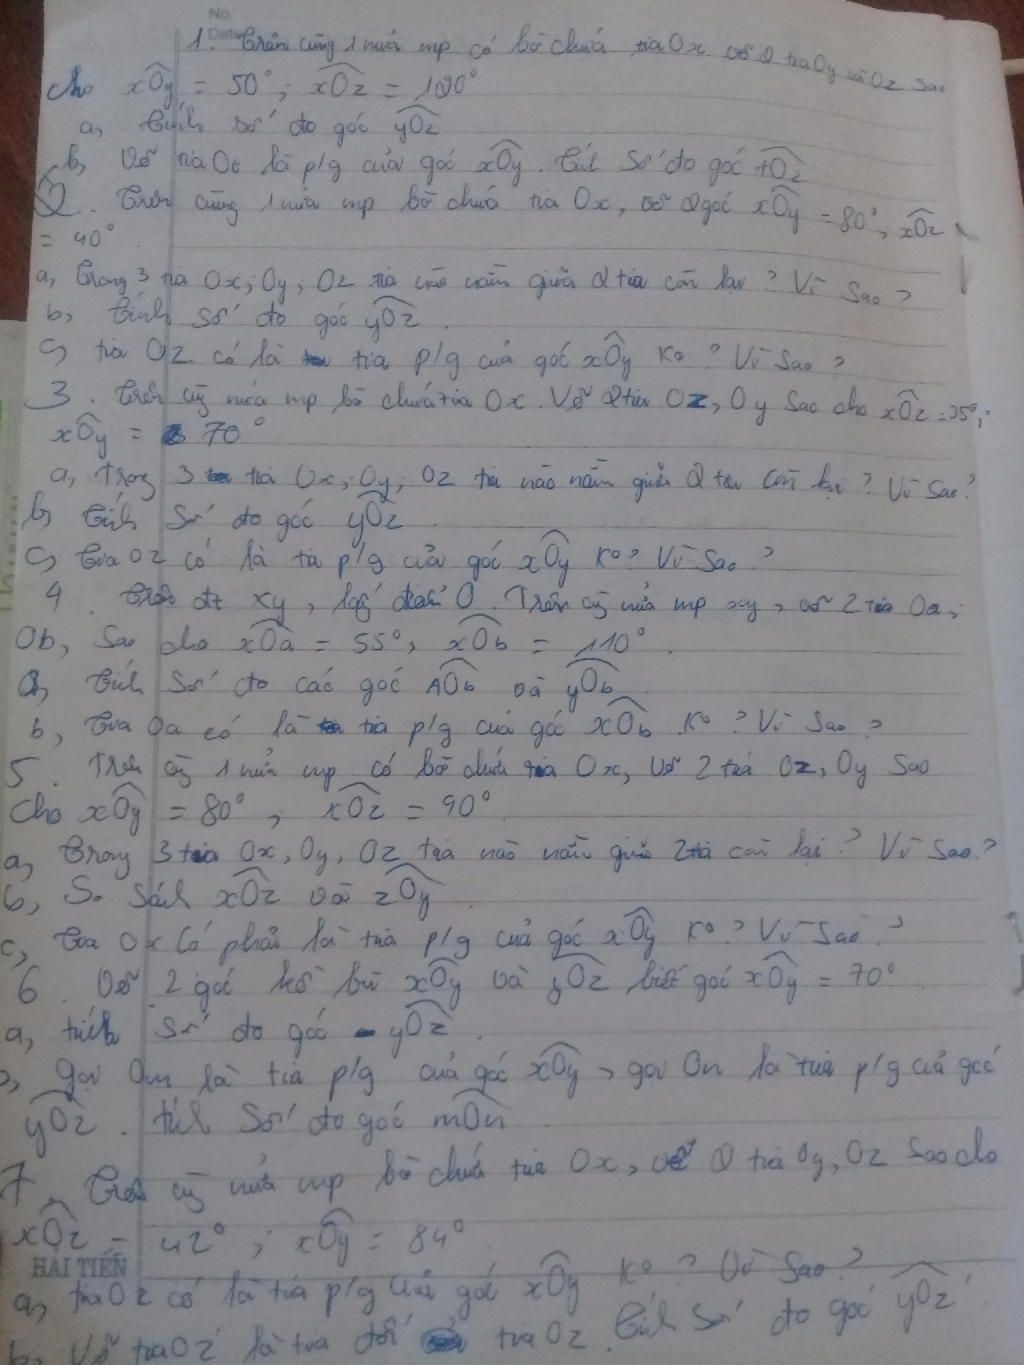 No.
Date
1. Trên cùng 1 nửa mp có bờ chứa tia Ox vẽ 2 tia Oy và Oz sao
cho xOy = 50°; xOz = 120°
a, Tính số đo góc yOz
b, Vẽ tia Ot là p/g của góc xOy. Tính số đo góc tOz
2. Trên cùng 1 nửa mp bờ chứa tia Ox, vẽ 2 góc xOy = 80°, xOz
= 40°
a, Trong 3 tia Ox; Oy; Oz tia nào nằm giữa 2 tia còn lại? Vì sao?
b, Tính số đo góc yOz.
c, tia Oz có là tia p/g của góc xOy ko? Vì sao?
3. Trên cg nửa mp bờ chứa tia Ox. Vẽ 2 tia Oz, Oy sao cho xOz = 35°;
xOy = 70°
a, Trong 3 tia Ox; Oy; Oz tia nào nằm giữa 2 tia còn lại? Vì sao?
b, Tính số đo góc yOz.
c, Tia Oz có là tia p/g của góc xOy ko? Vì sao?
4. Trên đt xy, lấy điểm O. Trên cg nửa mp xy, vẽ 2 tia Oa;
Ob, sao cho xOa = 55°, xOb = 110°.
a, Tính số đo các góc AOb và yOb.
b, Tia Oa có là tia p/g của góc xOb ko? Vì sao?
5. Trên cg 1 nửa mp có bờ chứa tia Ox, vẽ 2 tia Oz, Oy sao
cho xOy = 80°, xOz = 90°
a, Trong 3 tia Ox, Oy, Oz tia nào nằm giữa 2 tia còn lại? Vì sao?
b, So sánh xOz và zOy
c, Tia Ox có phải là tia p/g của góc xOy ko? Vì sao?
6. Vẽ 2 góc kề bù xOy và yOz biết góc xOy = 70°
a, tính số đo góc yOz.
gọi Om là tia p/g của góc xOy, gọi On là tia p/g của góc
yOz. tính số đo góc mOn
7. Trên cg nửa mp bờ chứa tia Ox, vẽ 2 tia Oy, Oz sao cho
xOz = 42°; xOy = 84°
HẢI TIẾN
a, tia Oz có là tia p/g của góc xOy ko? Vì sao?
b, Vẽ tia Oz' là tia đối tia Oz. Tính số đo góc yOz'